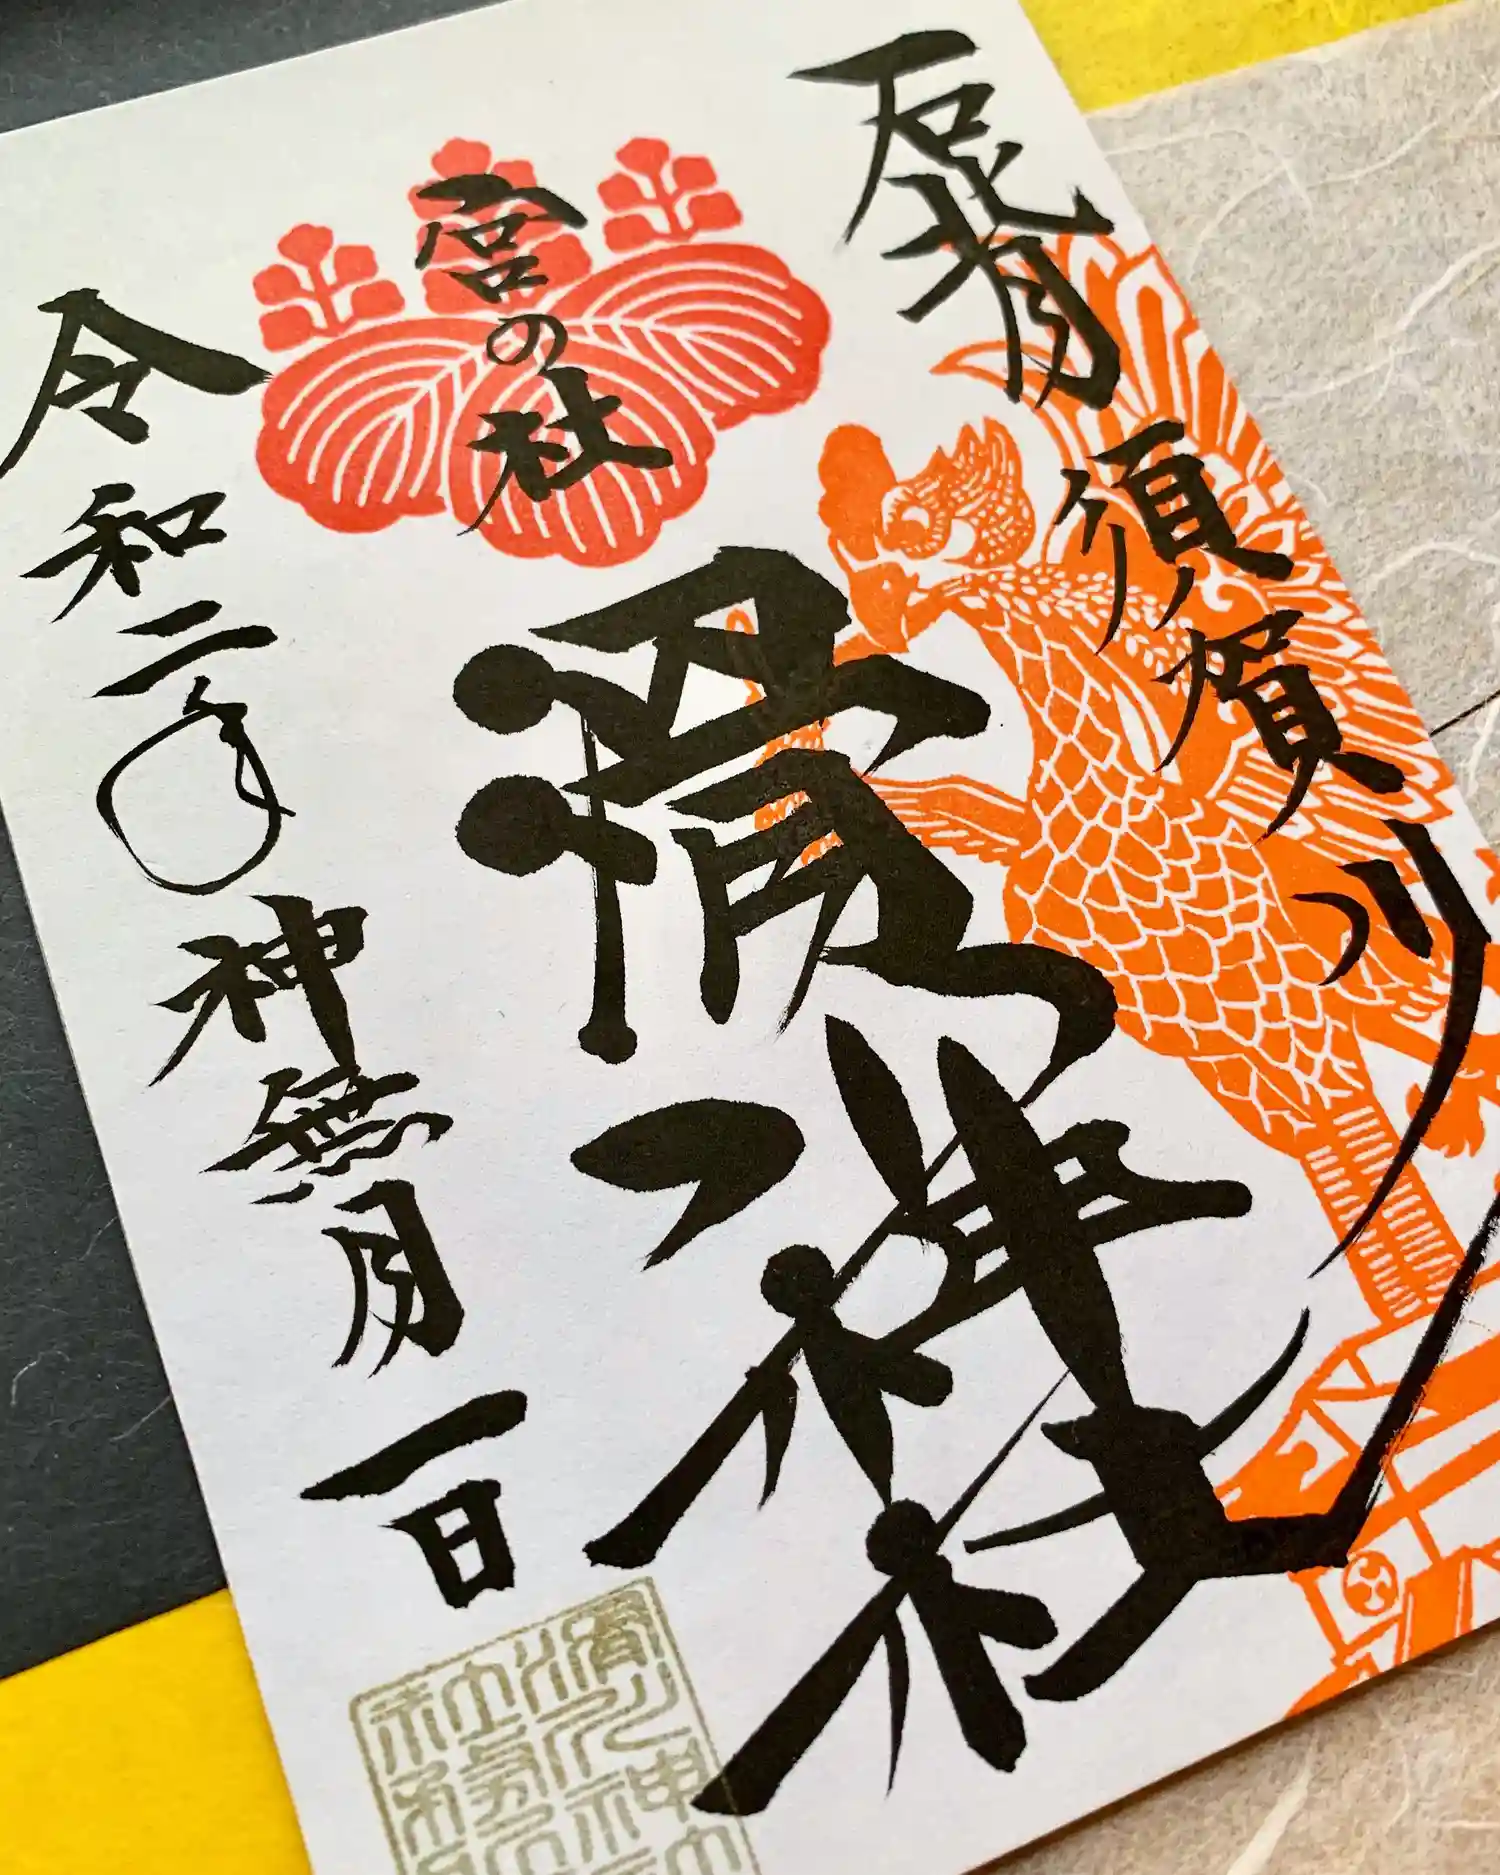 須賀川
宮の社
滑川神社
令和二年
神無月
一日